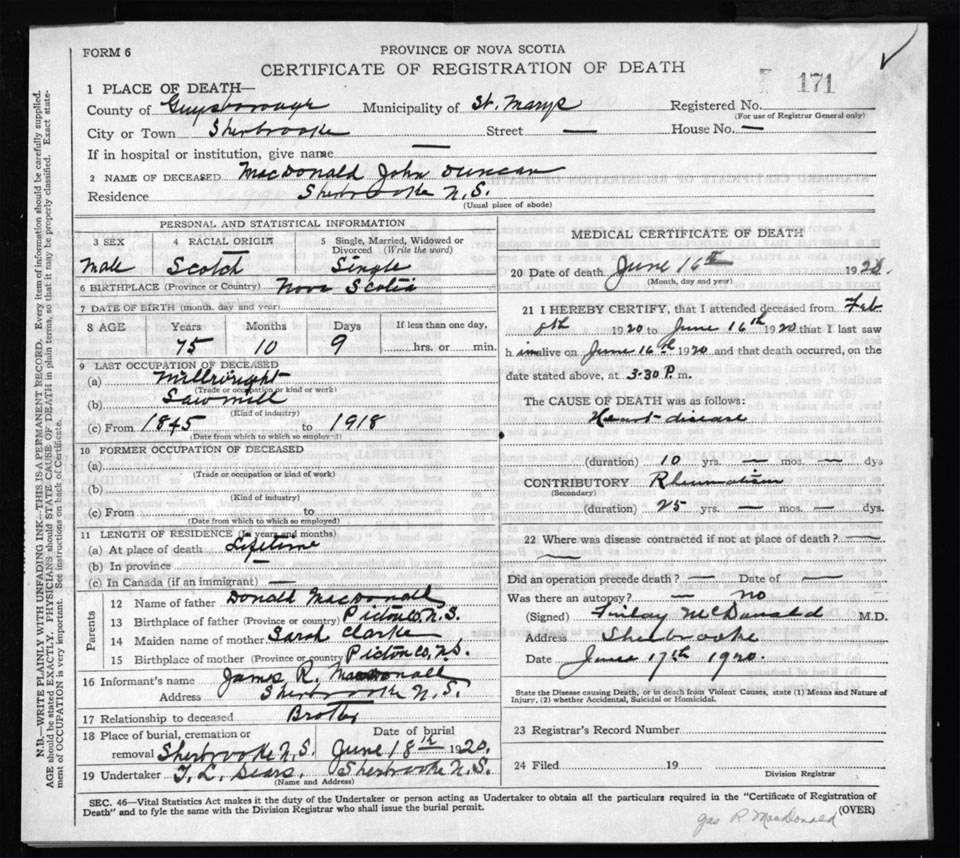 FORM 6
PROVINCE OF NOVA SCOTIA
CERTIFICATE OF REGISTRATION OF DEATH
171
1 PLACE OF DEATH—
County of Guysborough Municipality of St. Marys Registered No.
(For use of Registrar General only)
City or Town Sherbrooke Street — House No. —
If in hospital or institution, give name —
2 NAME OF DECEASED MacDonald John Duncan
Residence Sherbrooke N.S.
(Usual place of abode)
PERSONAL AND STATISTICAL INFORMATION
3 SEX 4 RACIAL ORIGIN 5 Single, Married, Widowed or Divorced (Write the word)
Male Scotch Single
6 BIRTHPLACE (Province or Country) Nova Scotia
7 DATE OF BIRTH (month, day and year)
8 AGE Years Months Days If less than one day,
75 10 9 hrs. or min.
9 LAST OCCUPATION OF DECEASED
(a) Millwright
(Trade or occupation or kind or work)
(b) Sawmill
(Kind of industry)
(c) From 1845 to 1918
(Date from which to which so employed)
10 FORMER OCCUPATION OF DECEASED
(a)
(Trade or occupation or kind of work)
(b)
(Kind of industry)
(c) From to
(Date from which to which so employed)
11 LENGTH OF RESIDENCE (In years and months)
(a) At place of death Lifetime
(b) In province —
(c) In Canada (if an immigrant) —
Parents
12 Name of father Donald MacDonald
13 Birthplace of father (Province or country) Pictou Co, N.S.
14 Maiden name of mother Sarah Clarke
15 Birthplace of mother (Province or country) Pictou Co, N.S.
16 Informant's name James R. MacDonald
Address Sherbrooke N.S.
17 Relationship to deceased Brother
18 Place of burial, cremation or Date of burial
removal Sherbrooke N.S. June 18th 1920.
19 Undertaker T. L. Sears. Sherbrooke N.S.
(Name and Address)
MEDICAL CERTIFICATE OF DEATH
20 Date of death June 16th 1920.
(Month, day and year)
21 I HEREBY CERTIFY, that I attended deceased from Feb
8th 1920 to June 16th 1920 that I last saw
h im alive on June 16th 1920 and that death occurred, on the
date stated above, at 3.30 P. m.
The CAUSE OF DEATH was as follows:
Heart disease
(duration) 10 yrs. — mos. — dys
CONTRIBUTORY Rheumatism
(Secondary)
(duration) 25 yrs. — mos. — dys.
22 Where was disease contracted if not at place of death? —
—
Did an operation precede death? — Date of —
Was there an autopsy? — no
(Signed) Finlay McDonald M.D.
Address Sherbrooke
Date June 17th 1920.
State the Disease causing Death, or in death from Violent Causes, state (1) Means and Nature of
Injury, (2) whether Accidental, Suicidal or Homicidal.
23 Registrar's Record Number
24 Filed 19
Division Registrar
SEC. 46—Vital Statistics Act makes it the duty of the Undertaker or person acting as Undertaker to obtain all the particulars required in the "Certificate of Registration of
Death" and to fyle the same with the Division Registrar who shall issue the burial permit. (OVER)
R. MacDonald
N.B.—WRITE PLAINLY WITH UNFADING INK—THIS IS A PERMANENT RECORD. Every item of information should be carefully supplied.
AGE should be stated EXACTLY. PHYSICIANS should STATE CAUSE OF DEATH in plain terms, so that it may be properly classified. Exact state-
ment of OCCUPATION is very important. See instructions on back of Certificate.